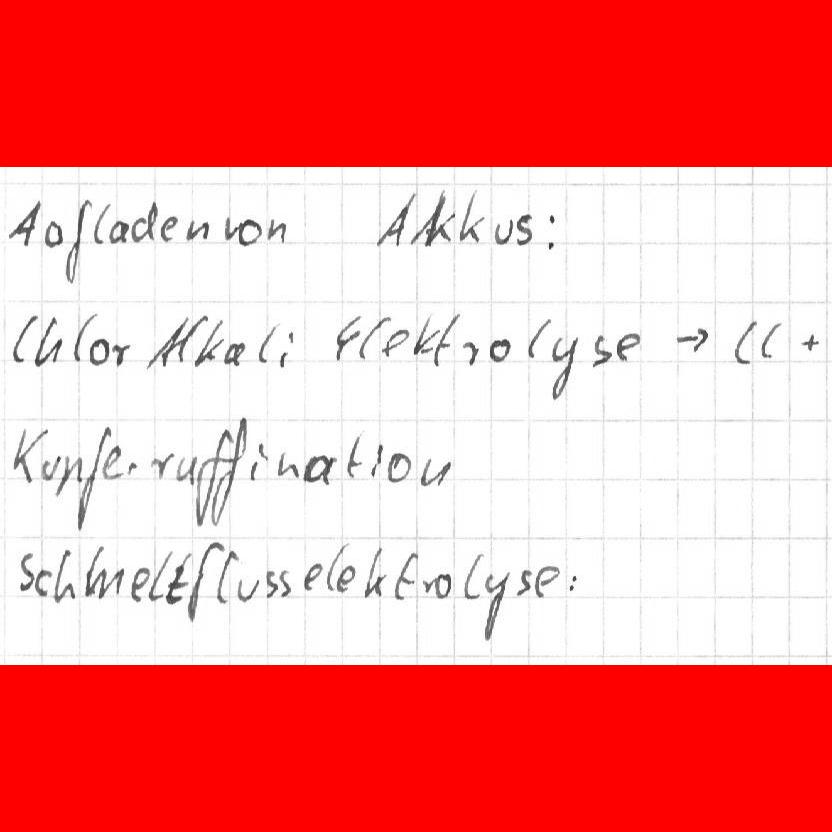 Aufladen von Akkus:
Chlor Alkali Elektrolyse → Cl +
Kupferruffination
Schmeltzflusselektrolyse: